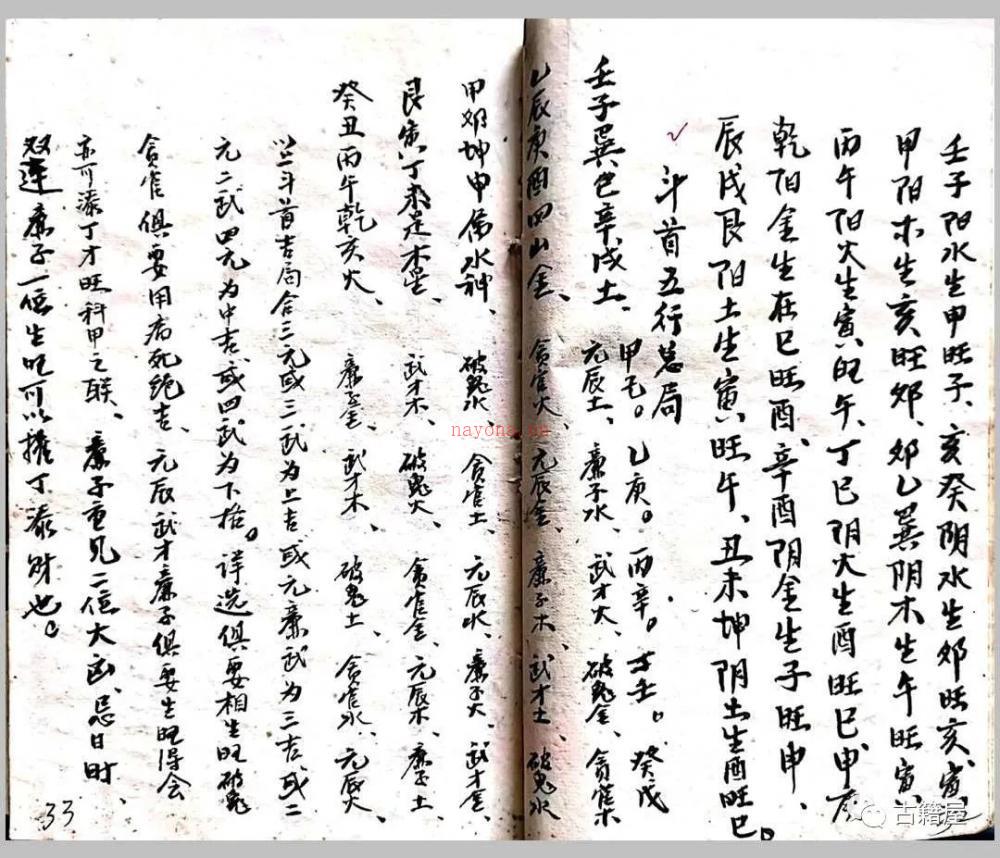 壬子阳水生申旺子、亥癸阴水生卯旺亥、寅
甲阳木生亥旺卯、卯乙巽阴木生午旺寅、
丙午阳火生寅旺午、丁巳阴火生酉旺巳、申庚
乾阳金生在巳旺酉、辛酉阴金生子旺申、
辰戌艮阳土生寅旺午、丑未坤阴土生酉旺巳。
斗首五行总局
甲己。乙庚。丙辛。丁壬。癸戊
壬子巽巳辛戌土、元辰土、廉子水、武才火、破鬼金、贪官木
乙辰庚酉四山金、贪官火、元辰金、廉子木、武才土、破鬼水
甲卯坤申属水神、破鬼火、贪官土、元辰水、廉子火、武才金、
艮寅丁未是木星、武才木、破鬼火、贪官金、元辰木、廉子土
癸丑丙午乾亥火、廉子金、武才木、破鬼土、贪官水、元辰火
以二斗首吉局合三元或三武为上吉、或元廉武为三吉、或二
元二武四元为中吉或四武为下格。详选俱要相生旺破鬼
贪官俱要用病死绝吉、元辰武才廉子俱要生旺得会
亦可添丁才旺科甲之联、廉子重见二位大凶、忌日时
双连廉子一位生旺可以擢丁添财也。
33
nayona.cn
古籍屋